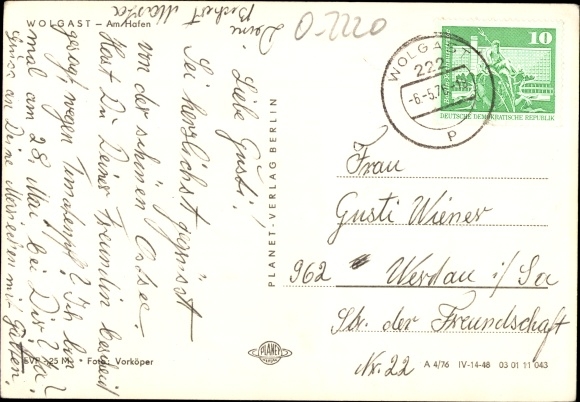 WOLGAST — Am Hafen
Liebe Gusti!
Sei herzlichst gegrüsst
von der schönen Ostsee.
Hast Du Deiner Freundin bescheid
gesagt wegen ? Ich bin
mal am 28. Mai bei Dir?
Gruss an Deine mit Gatten.
Deine
Bechert
0-2220
PLANET-VERLAG BERLIN
WOLGAST 1
222
-6.-5.76
P
10
DEUTSCHE DEMOKRATISCHE REPUBLIK
Frau
Gusti Wiener
962 Werdau i/Sa
Str. der Freundschaft
Nr. 22
PLANET
VERLAG
EVP -,25 M • Foto: Vorköper
A 4/76 IV-14-48 03 01 11 043